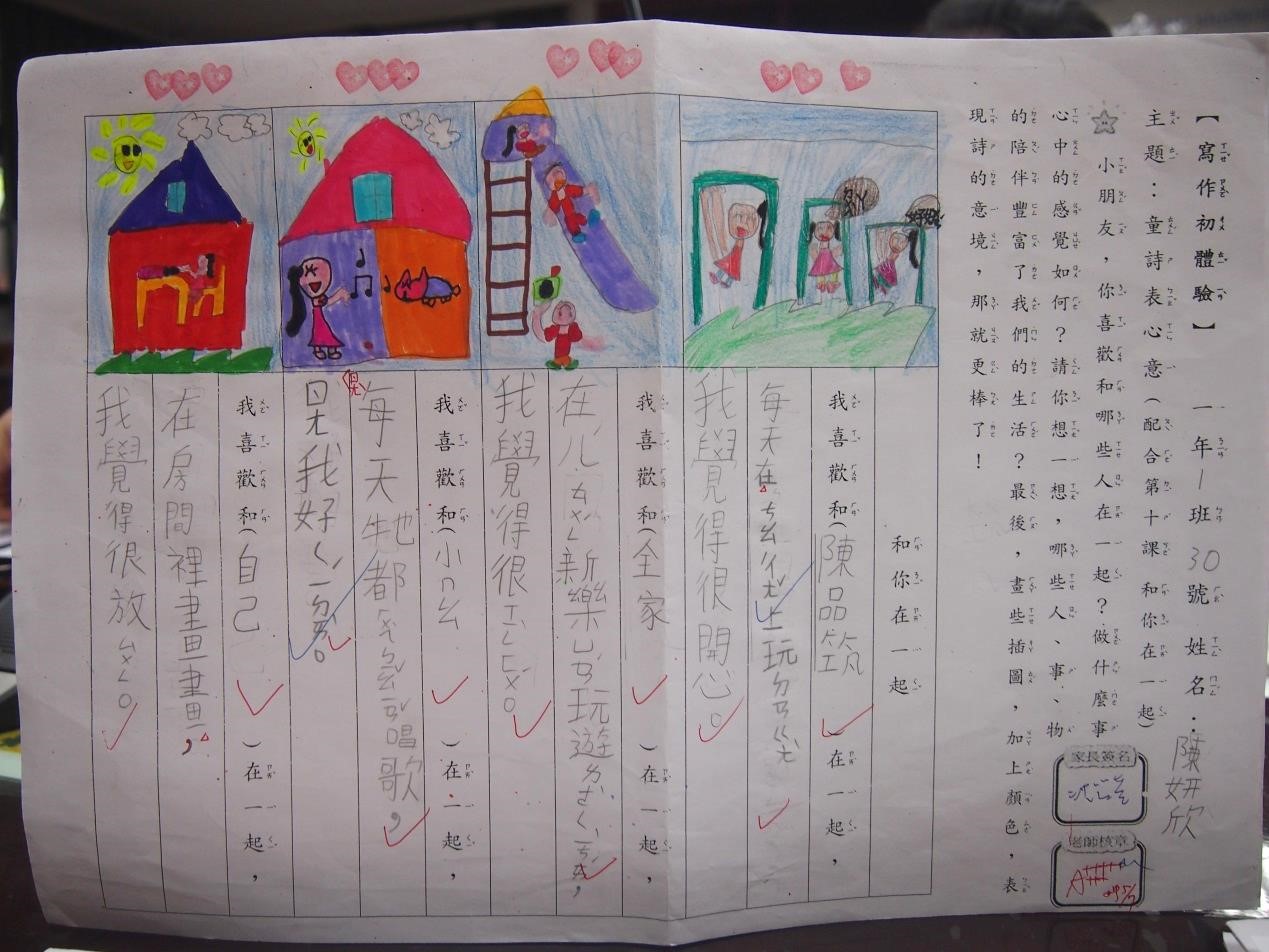 【寫作初體驗】 一年1班30號 姓名：陳妍欣
主題：童詩表心意(配合第十課 和你在一起)
小朋友，你喜歡和哪些人在一起？做什麼事
心中的感覺如何？請你想一想，哪些人、事、物
的陪伴豐富了我們的生活？最後，畫些插圖，加上顏色，表
現詩的意境，那就更棒了！
家長簽名
老師核章
和你在一起
我喜歡和(陳品筑)在一起，
每天在ㄘㄠ上玩
我覺得很開心。
我喜歡和(全家)在一起，
在儿新樂ㄩㄢˊ玩遊
我覺得很
我喜歡和(小ㄇㄠ)在一起，
每天牠都唱歌，
我好
我喜歡和(自己)在一起，
在房間裡畫畫，
我覺得很放ㄙㄨㄥ。